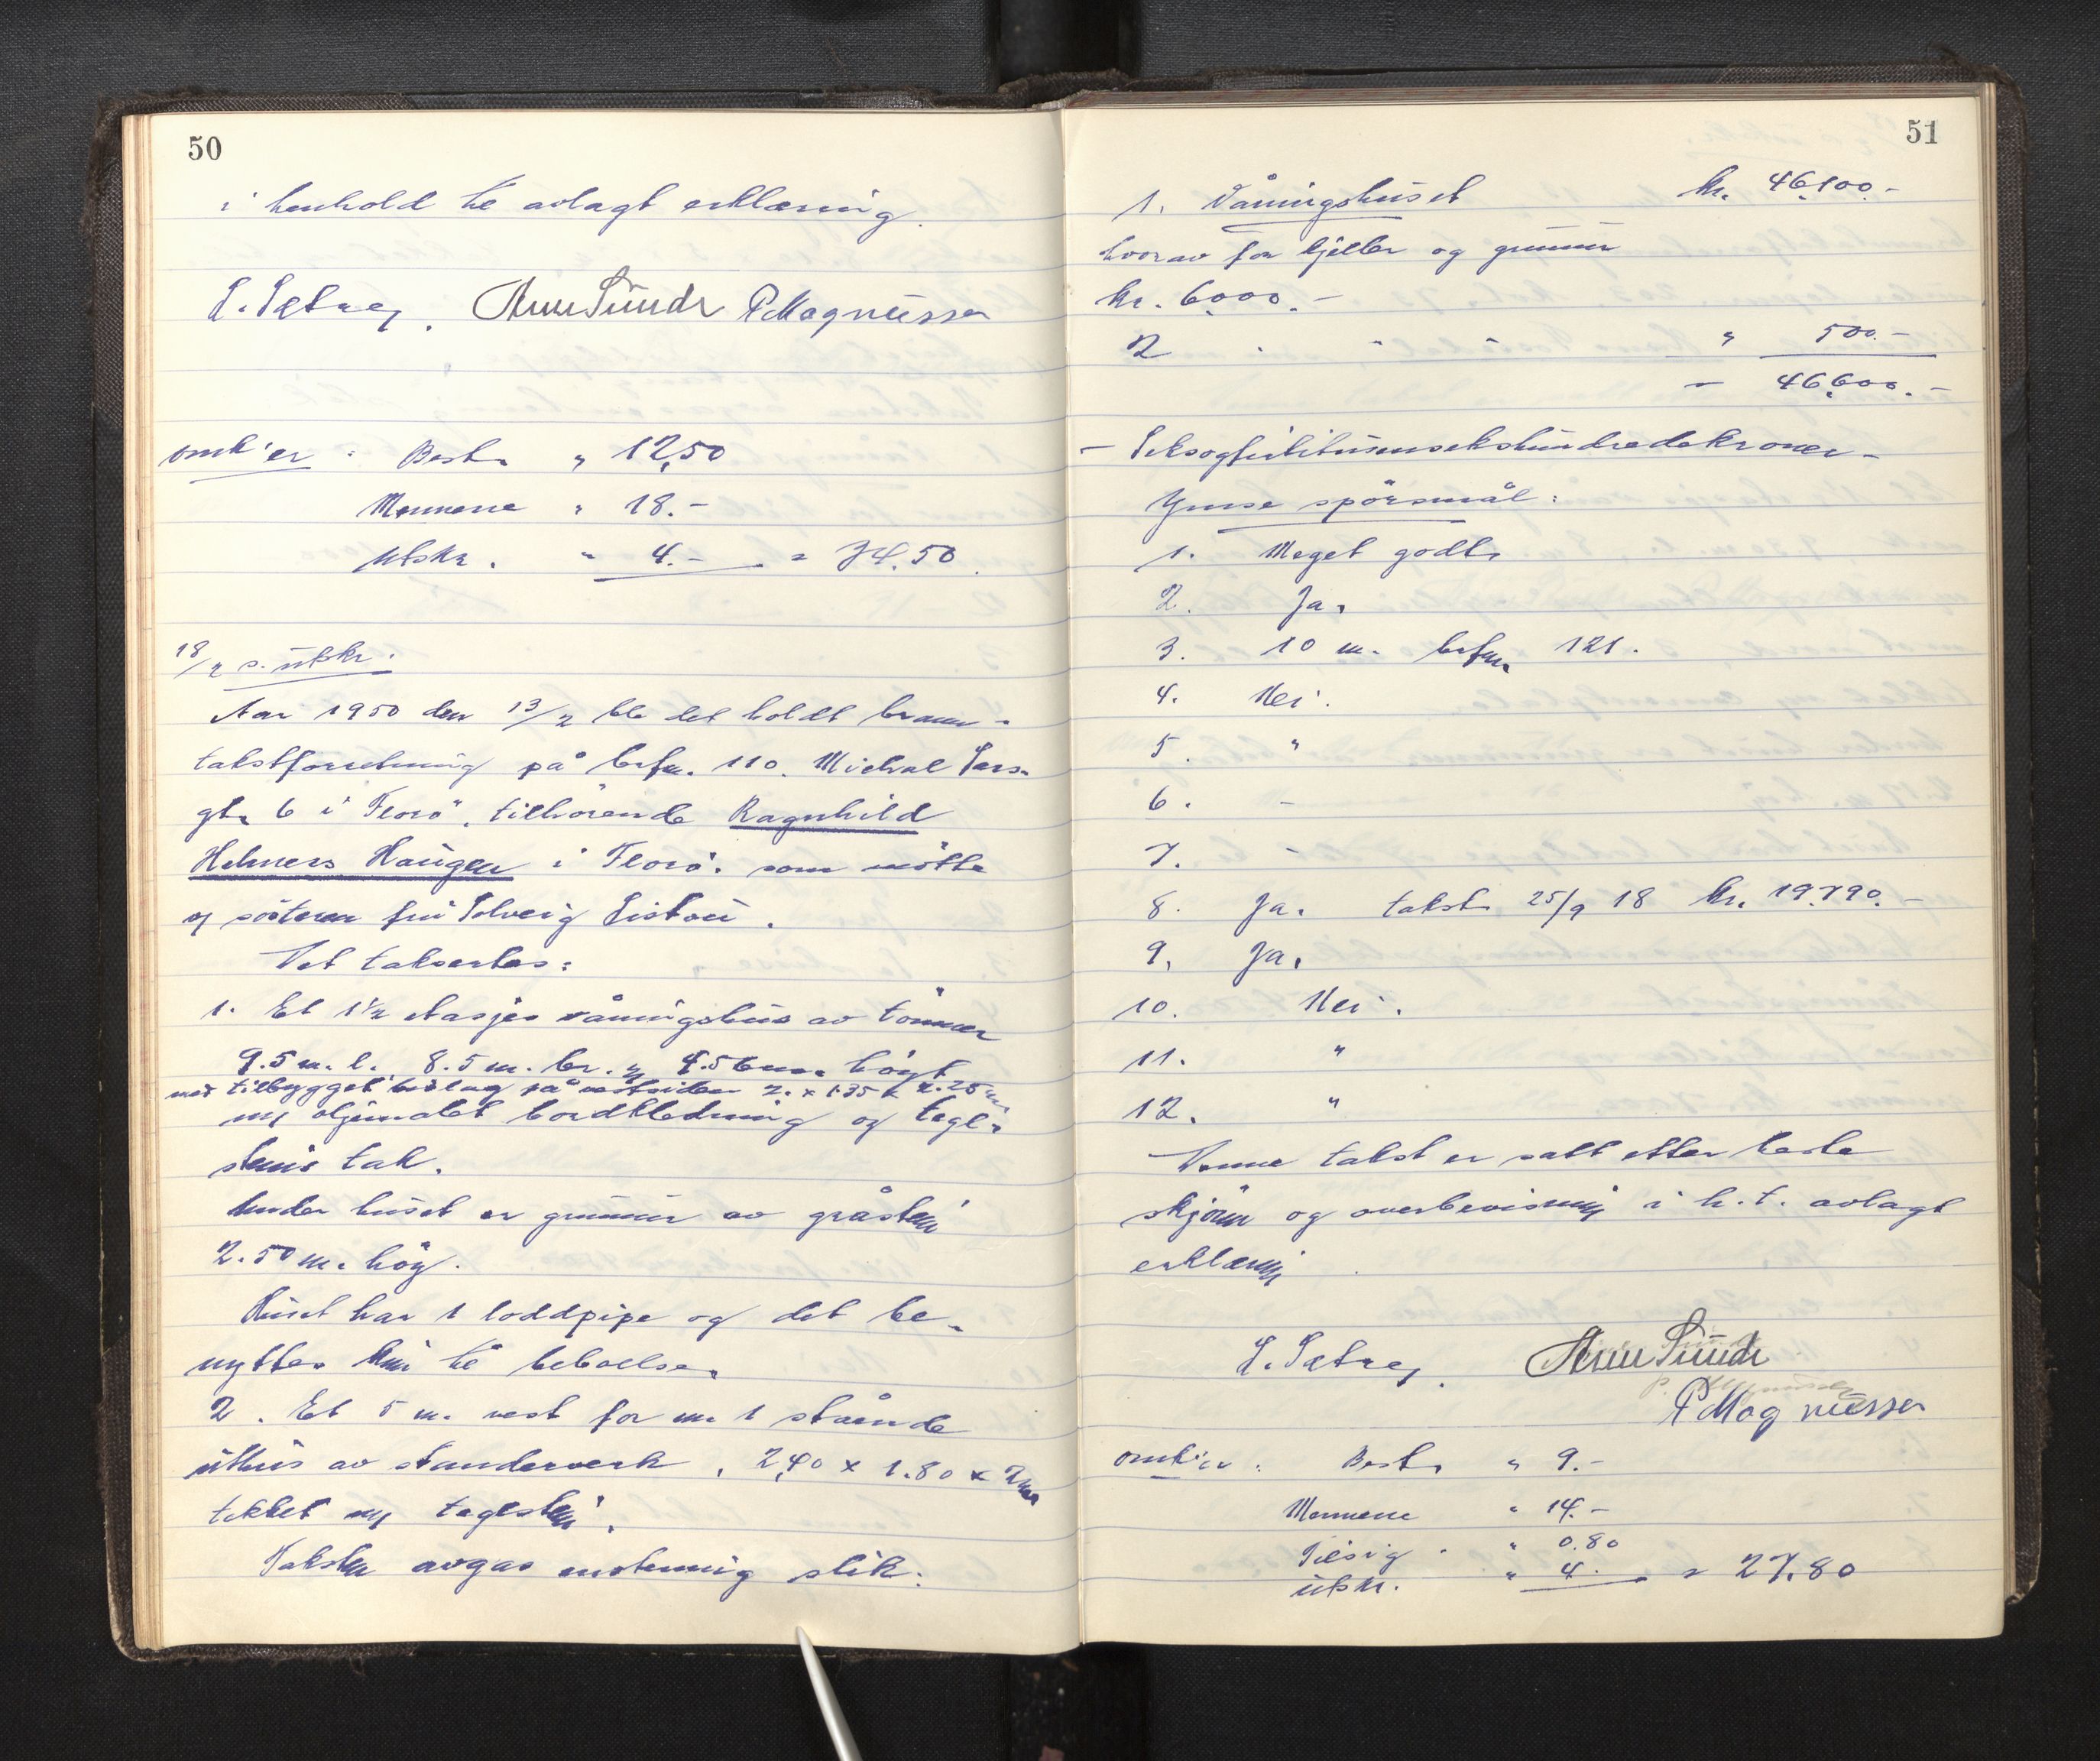 50
i henhold til avlagt erklæring.
L. Sætrey. Arne Sunde P Magnussen
omk'er : Best. " 12,50
Mennene " 18.-
Utskr. " 4.- = 34.50
18/2 s. utskr.
Aar 1950 den 13/2 ble det holdt brann-
takstforretning på brfm. 110. Michal Sars.
gt. 6 i Florö, tilhörende Ragnhild
Helmers Haugen i Florö. som mötte
og sösteren fru Solveig
Det takseres:
1. Et 1½ etasjes våningshus av tömmer
9.5 m. l. 8.5 m. br. og 4.50 m. höyt
med tilbygget på vestsiden 2. x 1.35 x 2.25 m
m/ oljemalet bordkledning og tegl-
steins tak.
Under huset er grunnmur av gråstein
2.50 m. höy.
Huset har 1 loddpipe og det be-
nyttes kun til beboelse.
2. Et 5 m. vest for nr. 1 stående
uthus av standerverk, 2,40 x 1.80 x 2 m
tekket m/ teglstein.
Taksten avgas enstemmig slik:
51
1. Våningshuset kr. 46,100.-
hvorav for kjeller og grunnmur
kr. 6000.-
2 " " " " 500.-
= 46,600.-
- Seksogförtitusensekshundredekroner -
Ymse spörsmål:
1. Meget godt.
2. Ja.
3. 10 m. brfm. 121.
4. Nei.
5. "
6. -
7. -
8. Ja. takst 25/9 18 kr. 19.790.-
9. Ja.
10. Nei.
11. "
12. "
Denne takst er satt etter beste
skjönn og overbevisning i h.t. avlagt
erklæring
L. Sætrey. Arne Sunde
P Magnussen
omk'er : Best. " 9.-
Mennene " 14.-
Tilsig. " 0.80
utskr. " 4. = 27.80